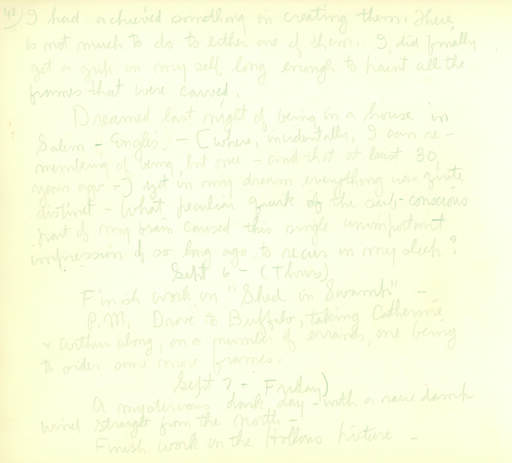 42) I had achieved something in creating them. There
is not much to do to either one of them. I did finally
get a grip on my self long enough to paint all the
frames that were carved.
Dreamed last night of being in a house in
Salem - Engle's - (where, incidentally, I can re-
membering of being but once - and that at least 30
years ago -) yet in my dream everything was quite
distinct - What peculiar quirk of the sub-conscious
part of my brain caused this single unimportant
impression of so long ago to recur in my sleep?
Sept 6 - (Thurs)
Finish work on "Shed in Swamp" -
P.M. Drove to Buffalo, taking Catherine
& Arthur along, on a number of errands, one being
to order some more frames.
Sept 7 - Friday)
A mysterious dark day - with a raw damp
wind straight from the north -
Finish work on the Hollows picture -